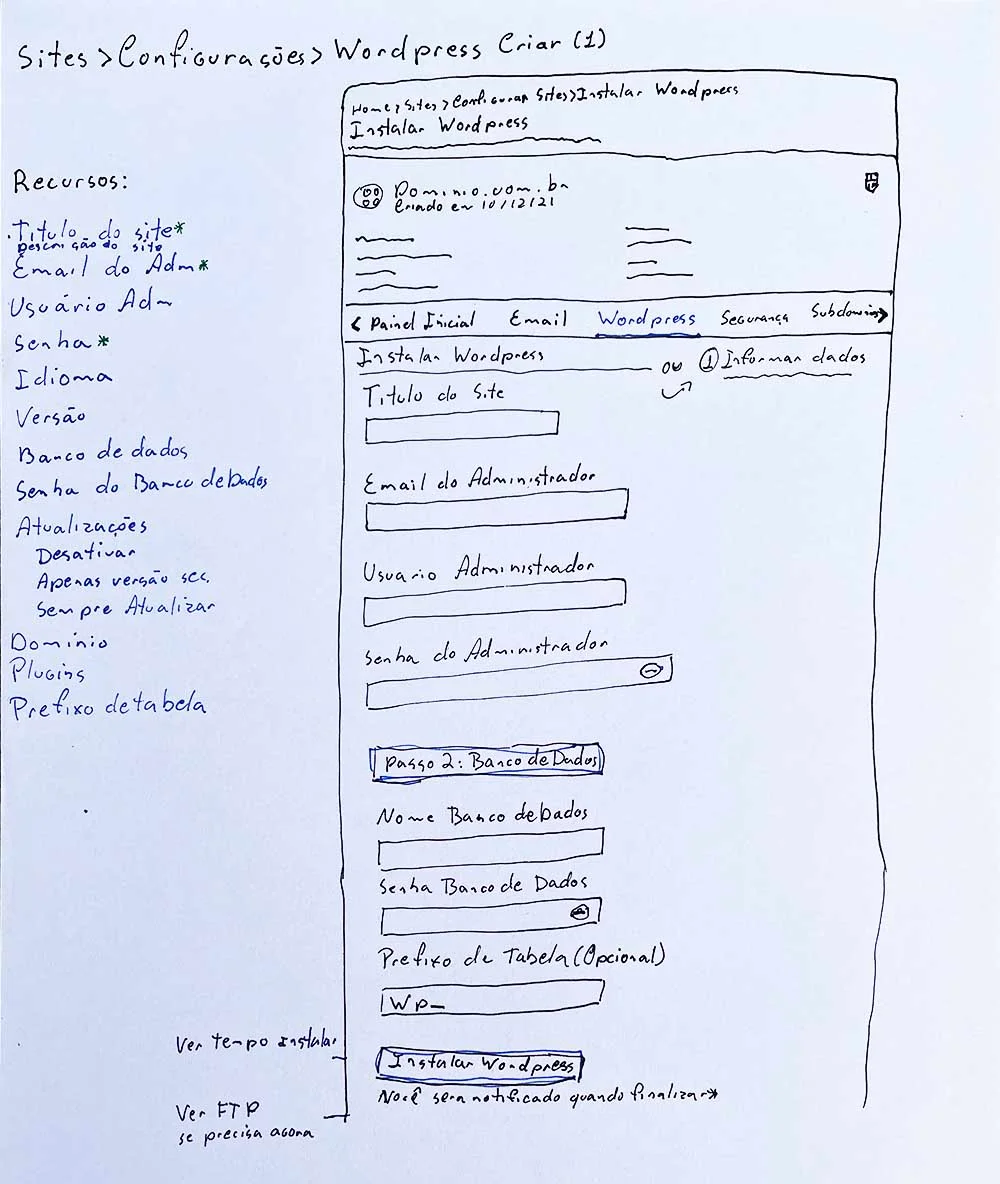 Sites > Configurações > Wordpress Criar (1)
Recursos:
Titulo do site*
Descrição do site
Email do Adm*
Usuário Adm
Senha*
Idioma
Versão
Banco de dados
Senha do Banco de Dados
Atualizações
Desativar
Apenas versão sec.
Sempre Atualizar
Domínio
Plugins
Prefixo de tabela
Ver tempo instalar
Ver FTP
se precisa agora
Home > Sites > Configurar Sites > Instalar Wordpress
Instalar Wordpress
Dominio.com.br
Criado em 10/12/21
< Painel Inicial Email Wordpress Segurança Subdominios >
Instalar Wordpress ou 1 Informar dados
Titulo do Site
Email do Administrador
Usuario Administrador
Senha do Administrador
Passo 2: Banco de Dados
Nome Banco de Dados
Senha Banco de Dados
Prefixo de Tabela (Opcional)
Wp_
Instalar Wordpress
Você sera notificado quando finalizar*